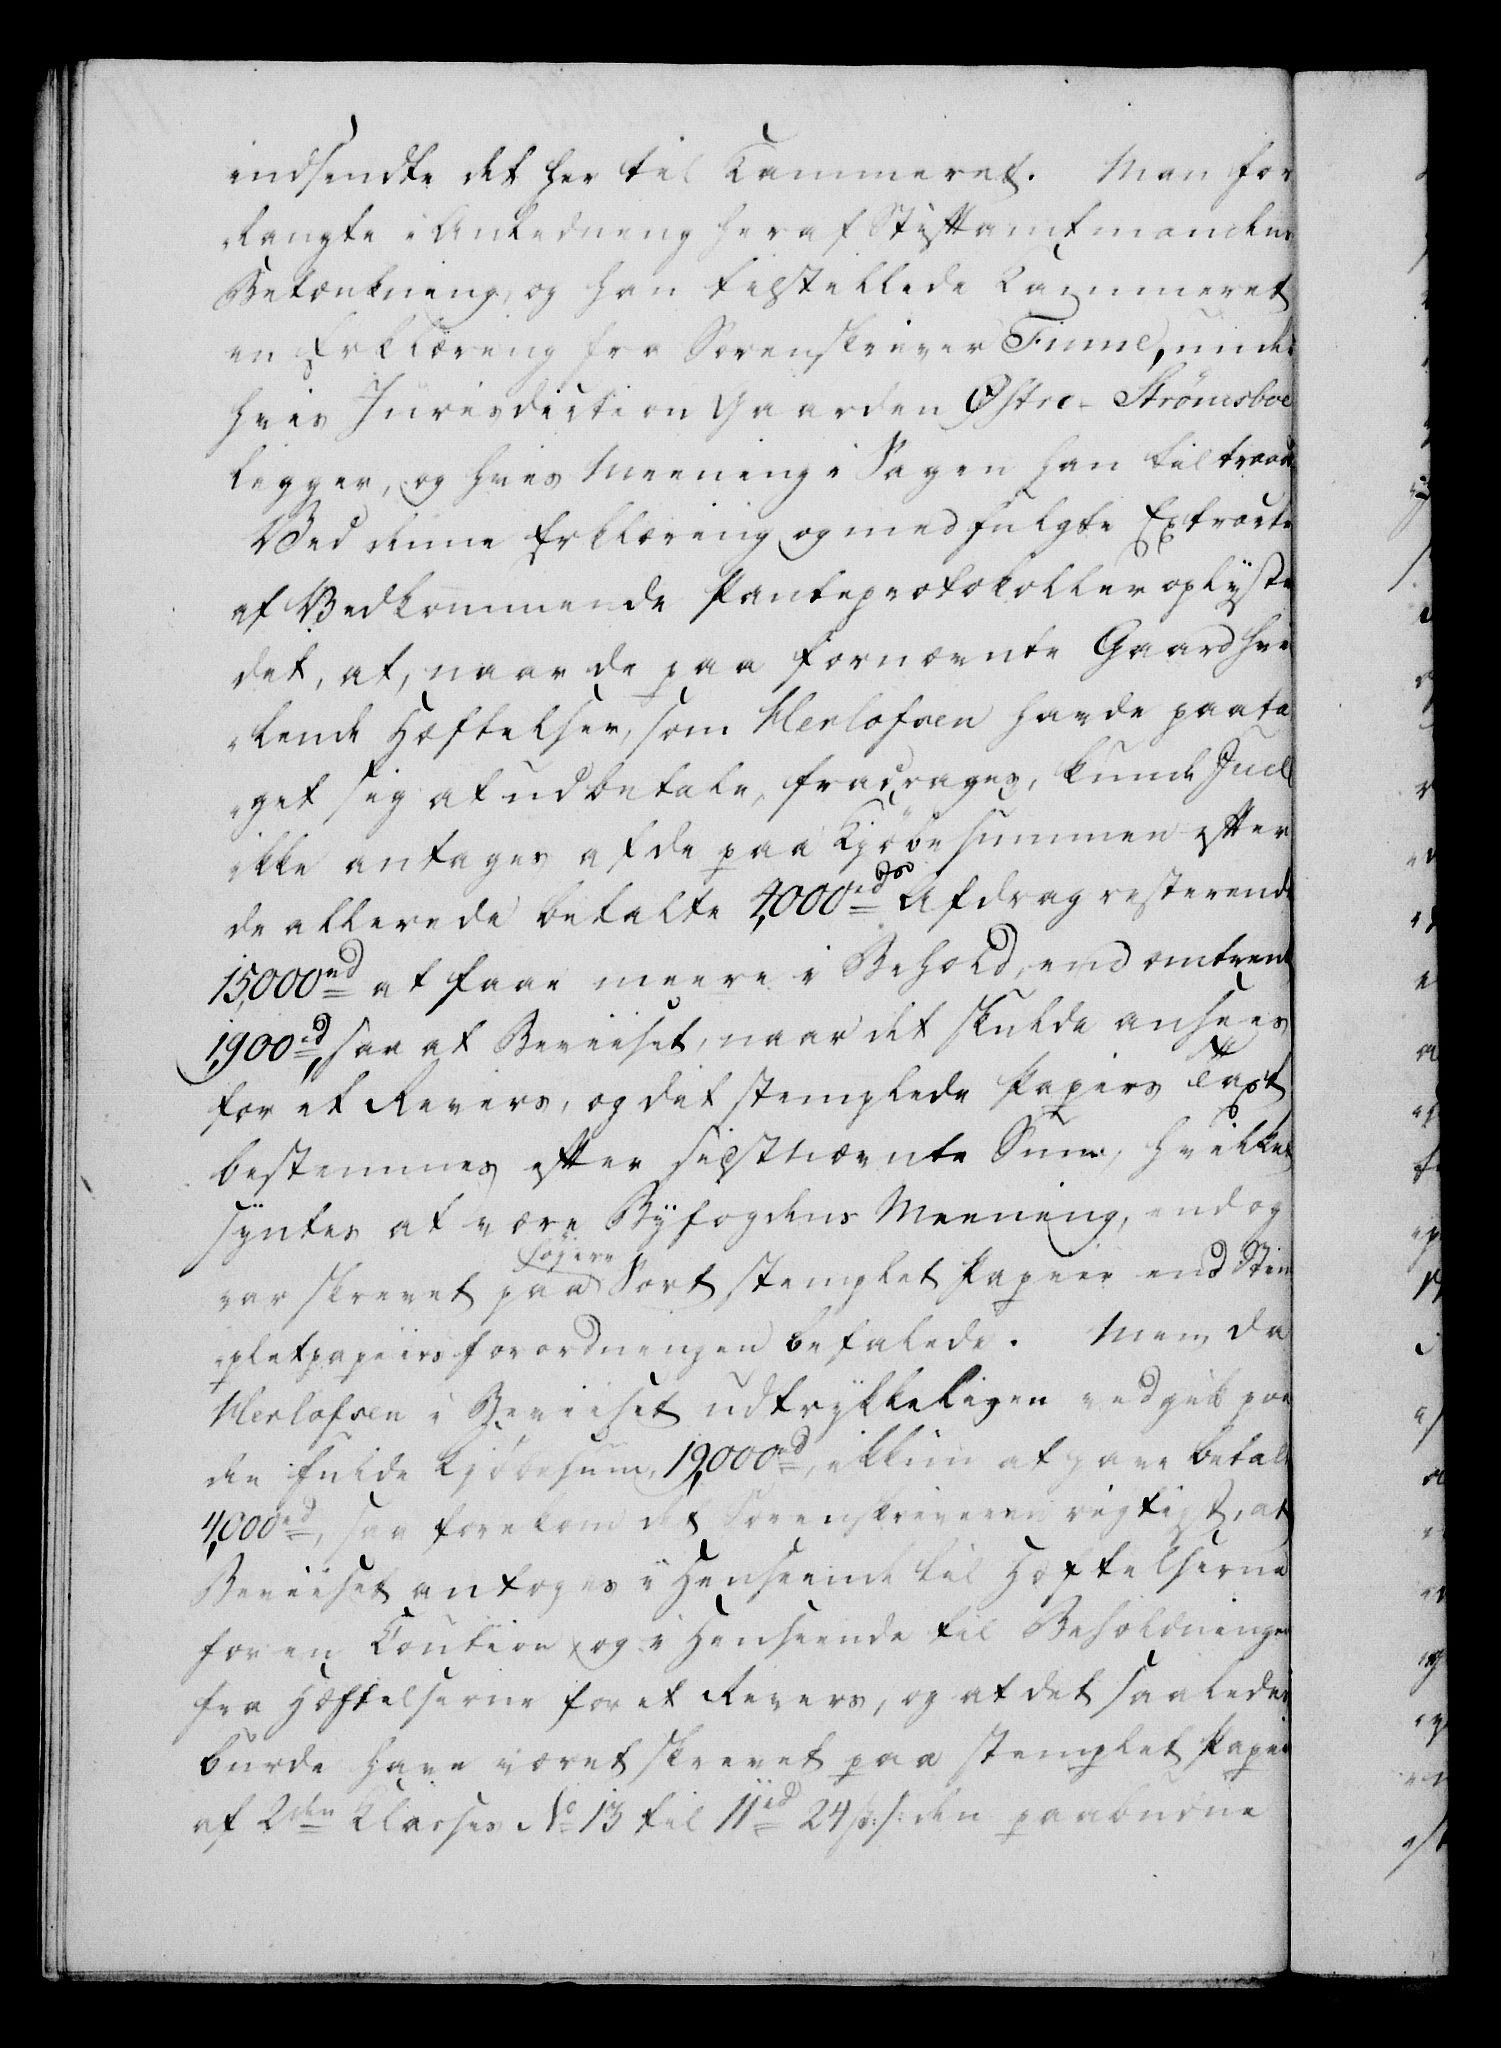 indsendte det her til Kammeret. Man for
„langte i Anledning heraf Stiftamtmandens
Betænkning, og han tilstillede Kammeret
en Erklæring fra Sorenskriver Finne, under
hvis Jurisdiction Gaarden Østre-Strømsboe
ligger, og hvis Meening i Sagen han tiltraad
Ved denne Erklæring og medfulgte Extracte
af Vedkommende Panteprotokoller oplyste
det, at, naar de paa fornævnte Gaard hvi
„lende Hæftelser, som Herlofsen havde paata
„get sig at udbetale, fradrages, kunde Juell
ikke antages af de paa Kjøbesummen efter
de allerede betalte 4,000 rd Afdrag resterende
15,000 rd at faae meere i Behold, end omtrent
1,900 rd, saa at Beviiset, naar det skulde ansees
for et Revers, og det stemplede Papirs Taxt
bestemmes efter sidstnævnte Sum, hvilket
syntes at være Byfogdens Meening, endog
var skrevet paa høiere Sort stemplet Papiir end Stem
„pletpapiirsforordningen befalede. Men, da
Herlofsen i Beviiset udtrykkeligen vedgik paa
den fulde Kjøbesum, 19,000 rd, ikkun at have betalt
4,000 rd, saa forekom det Sorenskriveren rigtigst, at
Beviiset antoges i Henseende til Hæftelserne
for en Caution, og i Henseende til Beholdningen
fra Hæftelserne for et Revers, og at det saaledes
burde have været skrevet paa stemplet Papir
af 2den Klasses No 13 til 11 rd 24 s: /: den paabudne